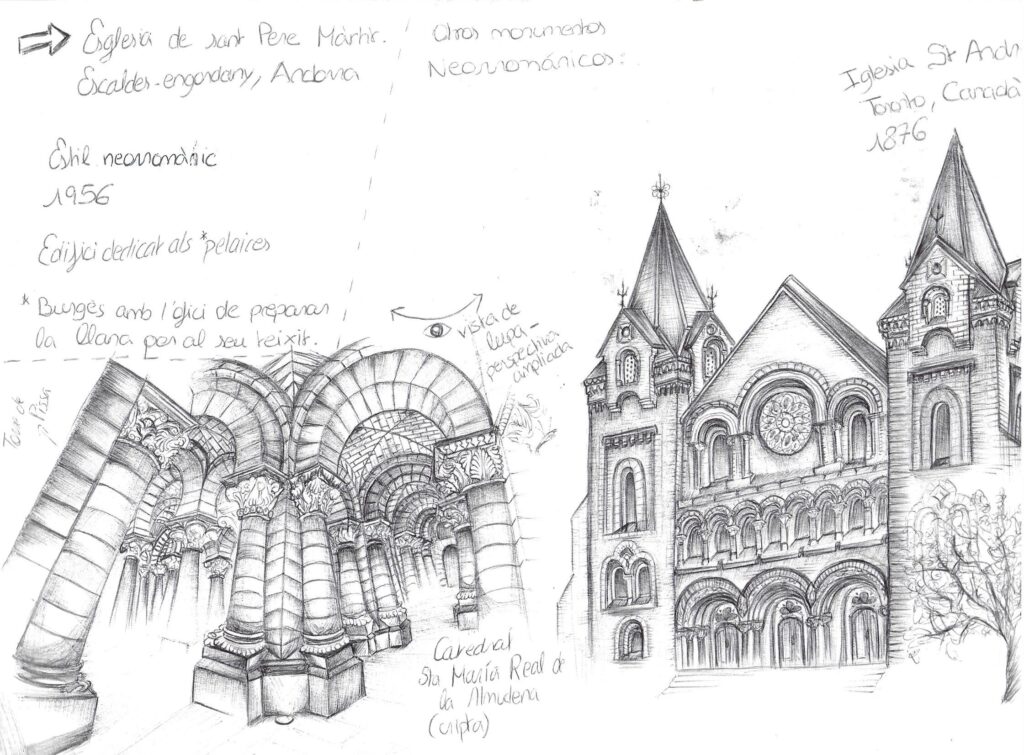 Esglesia de sant Pere Màrtir.
Escaldes-engordany, Andorra
Estil neorromànic
1956
Edifici dedicat als *pelaires
* Burgès amb l'ofici de preparar
la llana per al seu teixit.
Otros monumentos
Neorrománicos:
Iglesia St Andr
Toronto, Canadà
1876
vista de
lupa-
perspectiva
ampliada
Torre de
Pissa
Catedral
Sta María Real de
la Almudena
(cripta)